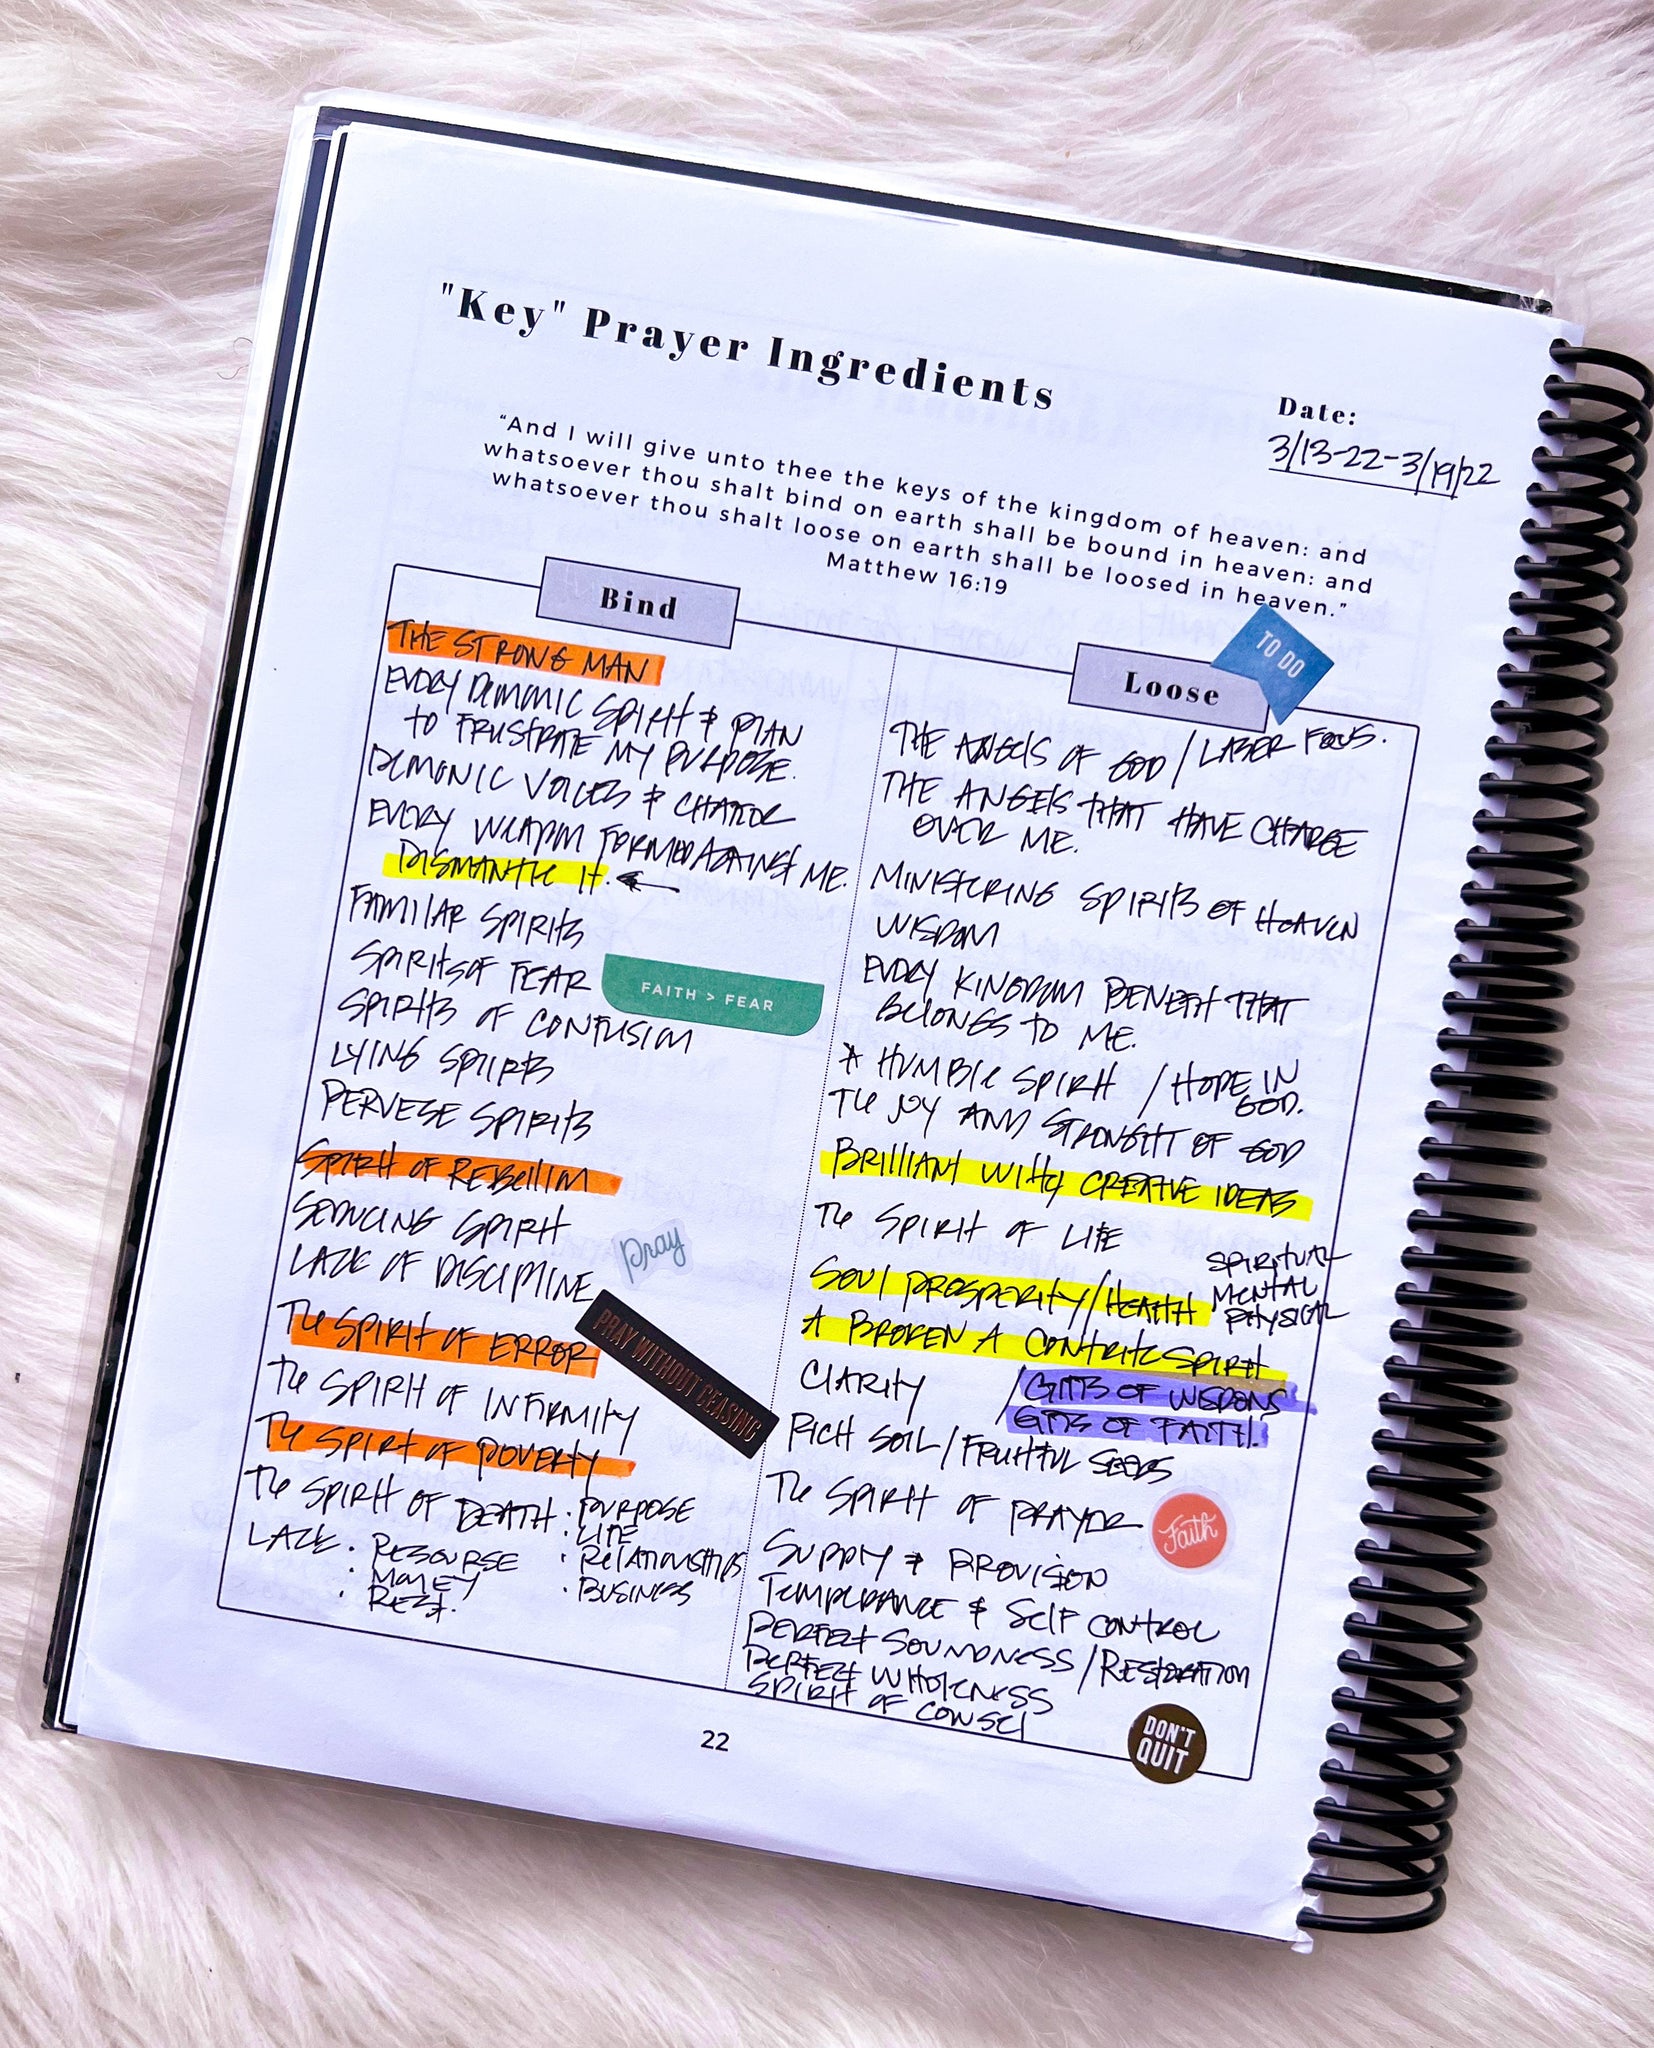 "Key" Prayer Ingredients
Date:
3/13-22-3/19/22
“And I will give unto thee the keys of the kingdom of heaven: and
whatsoever thou shalt bind on earth shall be bound in heaven: and
whatsoever thou shalt loose on earth shall be loosed in heaven.”
Matthew 16:19
Bind
THE STRONG MAN
EVERY DEMONIC SPIRIT & PLAN
TO FRUSTRATE MY PURPOSE.
DEMONIC VOICES & CHATTER
EVERY WEAPON FORMED AGAINST ME.
DISMANTLE IT.
FAMILIAR SPIRITS
SPIRITS OF FEAR
FAITH > FEAR
SPIRITS OF CONFUSION
LYING SPIRITS
PERVESE SPIRITS
SPIRIT OF REBELLION
SEDUCING SPIRIT
pray
LACK OF DISCIPLINE
PRAY WITHOUT CEASING
THE SPIRIT OF ERROR
THE SPIRIT OF INFIRMITY
THE SPIRIT OF POVERTY
THE SPIRIT OF DEATH · PURPOSE
· LIFE
· RELATIONSHIPS
· BUSINESS
LACK · RESOURSE
· MONEY
· REST.
Loose
TO DO
THE ANGELS OF GOD / LASER FOCUS.
THE ANGELS THAT HAVE CHARGE
OVER ME.
MINISTERING SPIRITS OF HEAVEN
WISDOM
EVERY KINGDOM BENEFIT THAT
BELONGS TO ME.
A HUMBLE SPIRIT / HOPE IN
GOD.
THE JOY AND STRENGHT OF GOD
BRILLIANT WITTY CREATIVE IDEAS
THE SPIRIT OF LIFE
SOUL PROSPERITY/HEALTH
SPIRITUAL
MENTAL
PHYSICAL
A BROKEN A CONTRITE SPIRIT
CLARITY / GIFTS OF WISDOMS
GIFTS OF FAITH!
RICH SOIL / FRUITFUL SEEDS
THE SPIRIT OF PRAYER
Faith
SUPPLY & PROVISION
TEMPERANCE & SELF CONTROL
PERFECT SOUNDNESS / RESTORATION
PERFECT WHOLENESS
SPIRIT OF COWSEL
DON'T
QUIT
22